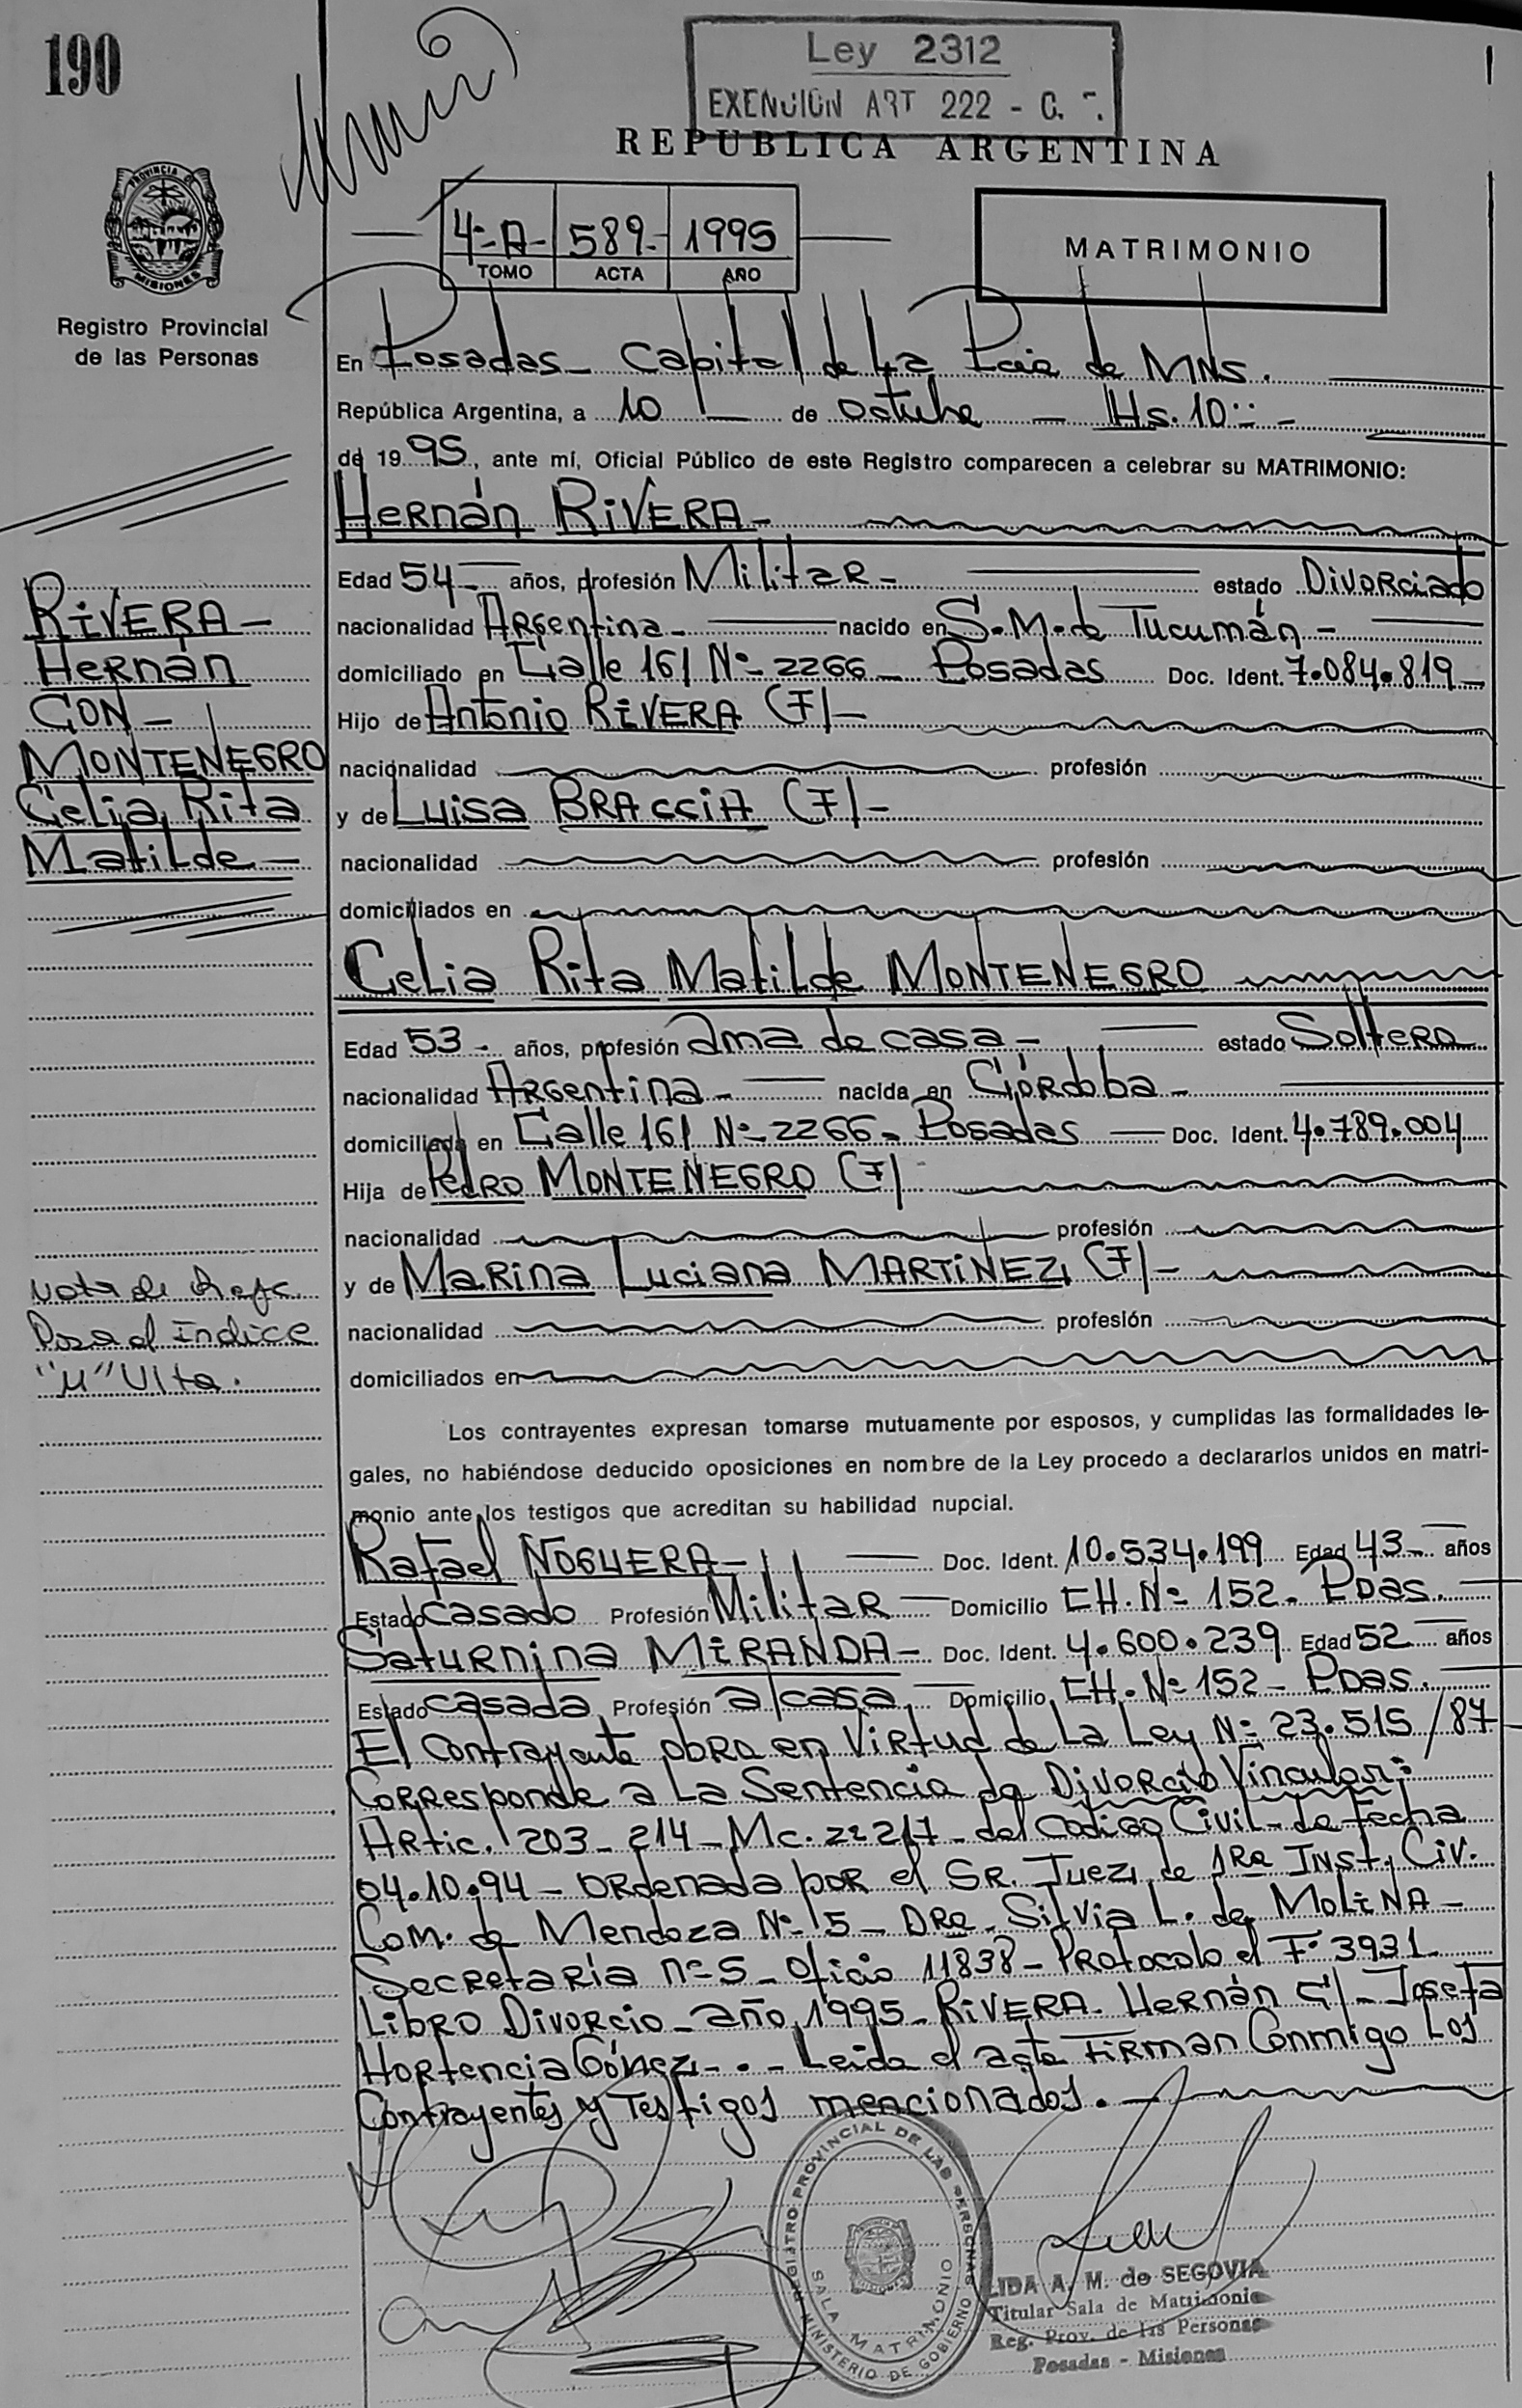 190
Ley 2312
EXENCIÓN ART 222 - C.
REPUBLICA ARGENTINA
PROVINCIA DE
MISIONES
Registro Provincial
de las Personas
4º-A- 589- 1995
TOMO ACTA AÑO
MATRIMONIO
En Posadas - Capital de La Pcia de MNS.
República Argentina, a 10 de Octubre - Hs. 10:-
de 1995, ante mí, Oficial Público de este Registro comparecen a celebrar su MATRIMONIO:
Hernán RIVERA-
Edad 54- años, profesión Militar- estado Divorciado
nacionalidad Argentina- nacido en S.M. de Tucumán-
domiciliado en Calle 161 Nº- 2266- Posadas Doc. Ident. 7.084.819-
Hijo de Antonio RIVERA (F)-
nacionalidad profesión
y de Luisa BRACCIA (F)-
nacionalidad profesión
domiciliados en
RIVERA-
Hernán
CON-
MONTENEGRO
Celia Rita
Matilde-
Celia Rita Matilde MONTENEGRO
Edad 53- años, profesión ama de casa- estado Soltera
nacionalidad Argentina- nacida en Córdoba-
domiciliada en Calle 161 Nº- 2266- Posadas Doc. Ident. 4.789.004
Hija de Pedro MONTENEGRO (F)
nacionalidad profesión
y de Marina Luciana MARTINEZ (F)-
nacionalidad profesión
domiciliados en
Nota de
Para el Indice
"M" Vlta.
Los contrayentes expresan tomarse mutuamente por esposos, y cumplidas las formalidades le-
gales, no habiéndose deducido oposiciones en nombre de la Ley procedo a declararlos unidos en matri-
monio ante los testigos que acreditan su habilidad nupcial.
Rafael NOGUERA- Doc. Ident. 10.534.199 Edad 43- años
Estado casado Profesión Militar Domicilio CH. Nº 152- Pdas.
Saturnina MIRANDA- Doc. Ident. 4.600.239 Edad 52 años
Estado casada Profesión a/casa Domicilio CH. Nº 152- Pdas.
El Contrayente obra en Virtud de La Ley Nº 23.515/87
Corresponde a La Sentencia de Divorcio Vincular;
Artic. 203-214-Mc. 2º 217- del Código Civil- de Fecha
04.10.94- Ordenada por el SR. Juez, de 1Ra Inst. Civ.
Com. de Mendoza Nº 5- DRa. Silvia L. de MOLINA-
Secretaría nº 5- Oficio 11838- Protocolo el Fº 3931
Libro Divorcio- año 1995- RIVERA- Hernán C/- Josefa
Hortencia Gómez-.- Leída el acta Firman Conmigo Los
Contrayentes y Testigos mencionados.
REGISTRO PROVINCIAL DE LAS PERSONAS
SALA MATRIMONIO
MINISTERIO DE GOBIERNO
LIDA A. M. de SEGOVIA
Titular Sala de Matrimonio
Reg. Prov. de las Personas
Posadas - Misiones